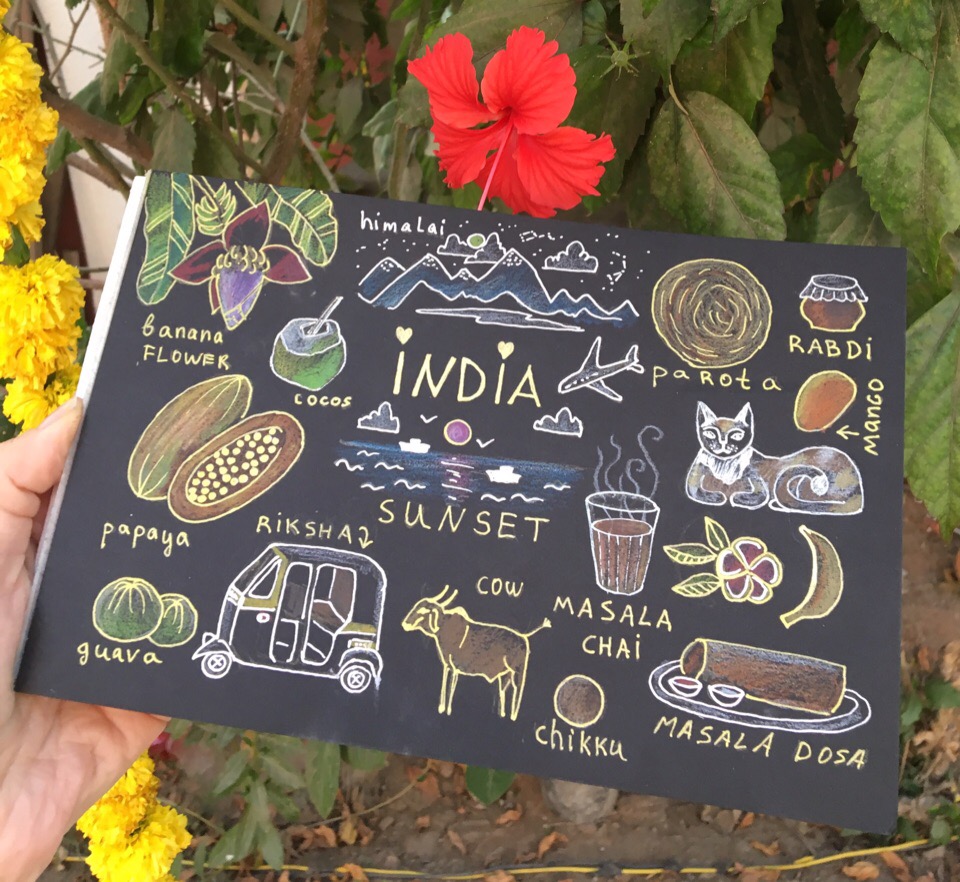 himalai
banana
FLOWER
cocos
INDIA
parota
RABDI
MANGO
papaya
RIKSHA
SUNSET
guava
COW
MASALA
CHAI
chikku
MASALA DOSA